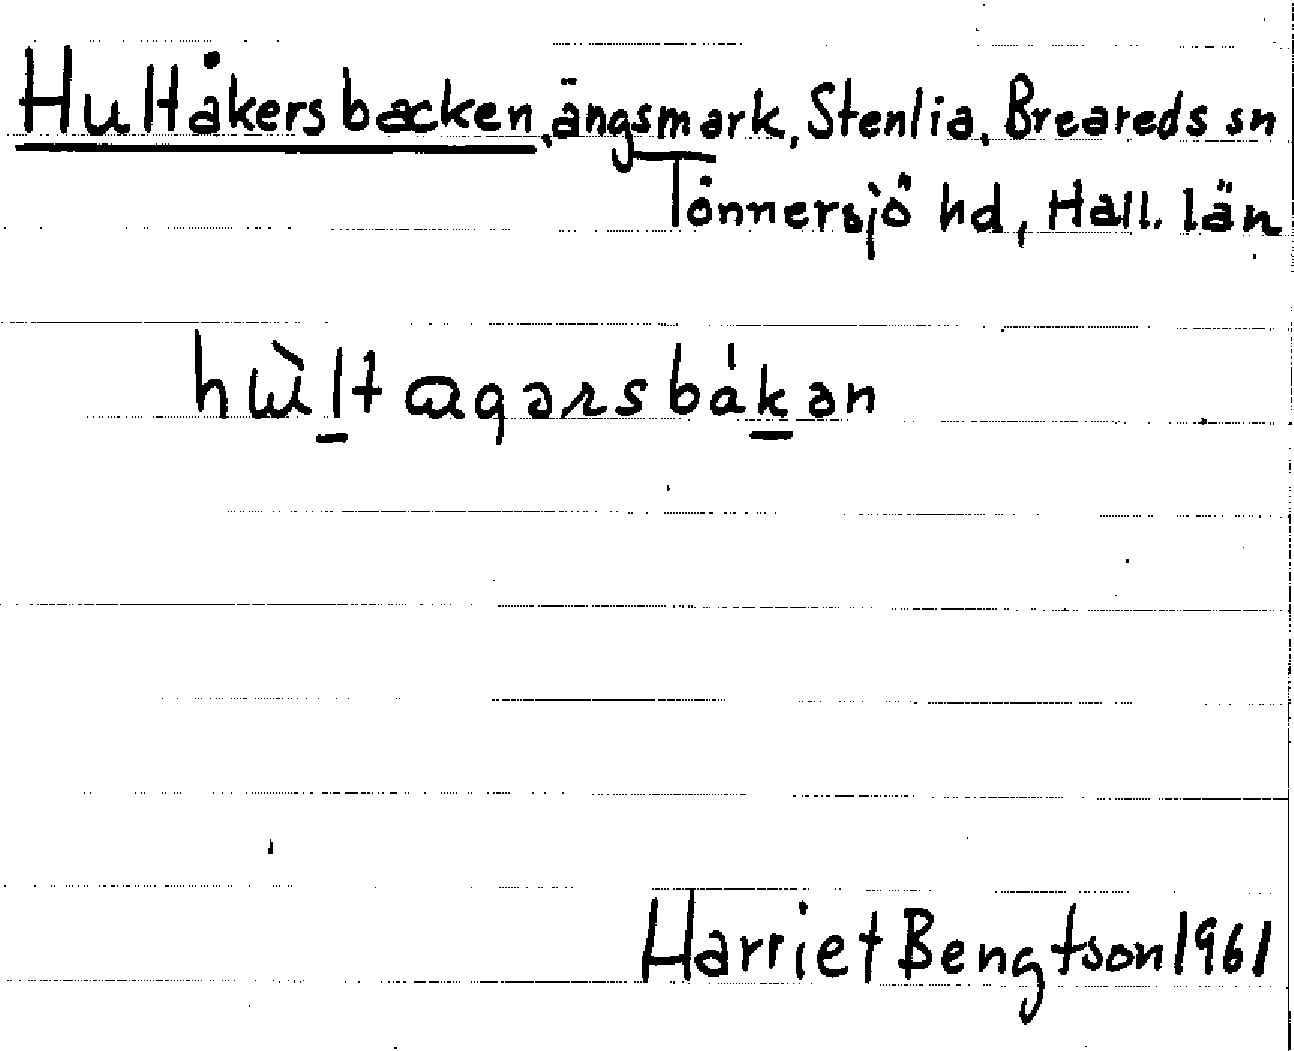 Hultåkersbacken, ängsmark, Stenlia, Breareds sn
Tönnersjö hd, Hall. län
hɯ̀l̠tɑqərsbák̠ən
Harriet Bengtson 1961